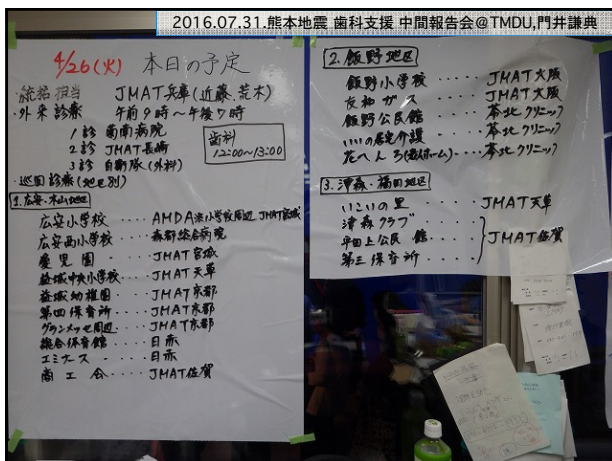 2016.07.31.熊本地震 歯科支援 中間報告会@TMDU,門井謙典
4/26(火) 本日の予定
・統括担当 JMAT兵庫(近藤、荒木)
・外来診療 午前9時〜午後7時
1診 菊南病院
2診 JMAT長崎
3診 自衛隊(外科)
歯科
12:00〜13:00
・巡回診療(地区別)
1.広安・木山地区
広安小学校 ‥‥ AMDA 小学校周辺 JMAT宮城
広安西小学校 ‥‥ 森都総合病院
愛児園 ‥‥ JMAT宮城
益城中央小学校 ‥‥ JMAT天草
益城幼稚園 ‥‥ JMAT京都
第四保育所 ‥‥ JMAT京都
グランメッセ周辺 ‥‥ JMAT京都
総合体育館 ‥‥ 日赤
エミナース ‥‥ 日赤
商工会 ‥‥ JMAT佐賀
2.飯野地区
飯野小学校 ‥‥ JMAT大阪
友和ガス ‥‥ JMAT大阪
飯野公民館 ‥‥ 苓北クリニック
いいの居宅介護 ‥‥ 苓北クリニック
花へんろ(老人ホーム) ‥‥ 苓北クリニック
3.津森・福田地区
いこいの里 ‥‥ JMAT天草
津森クラブ
平田上公民館 ‥‥ JMAT佐賀
第三保育所 ‥‥